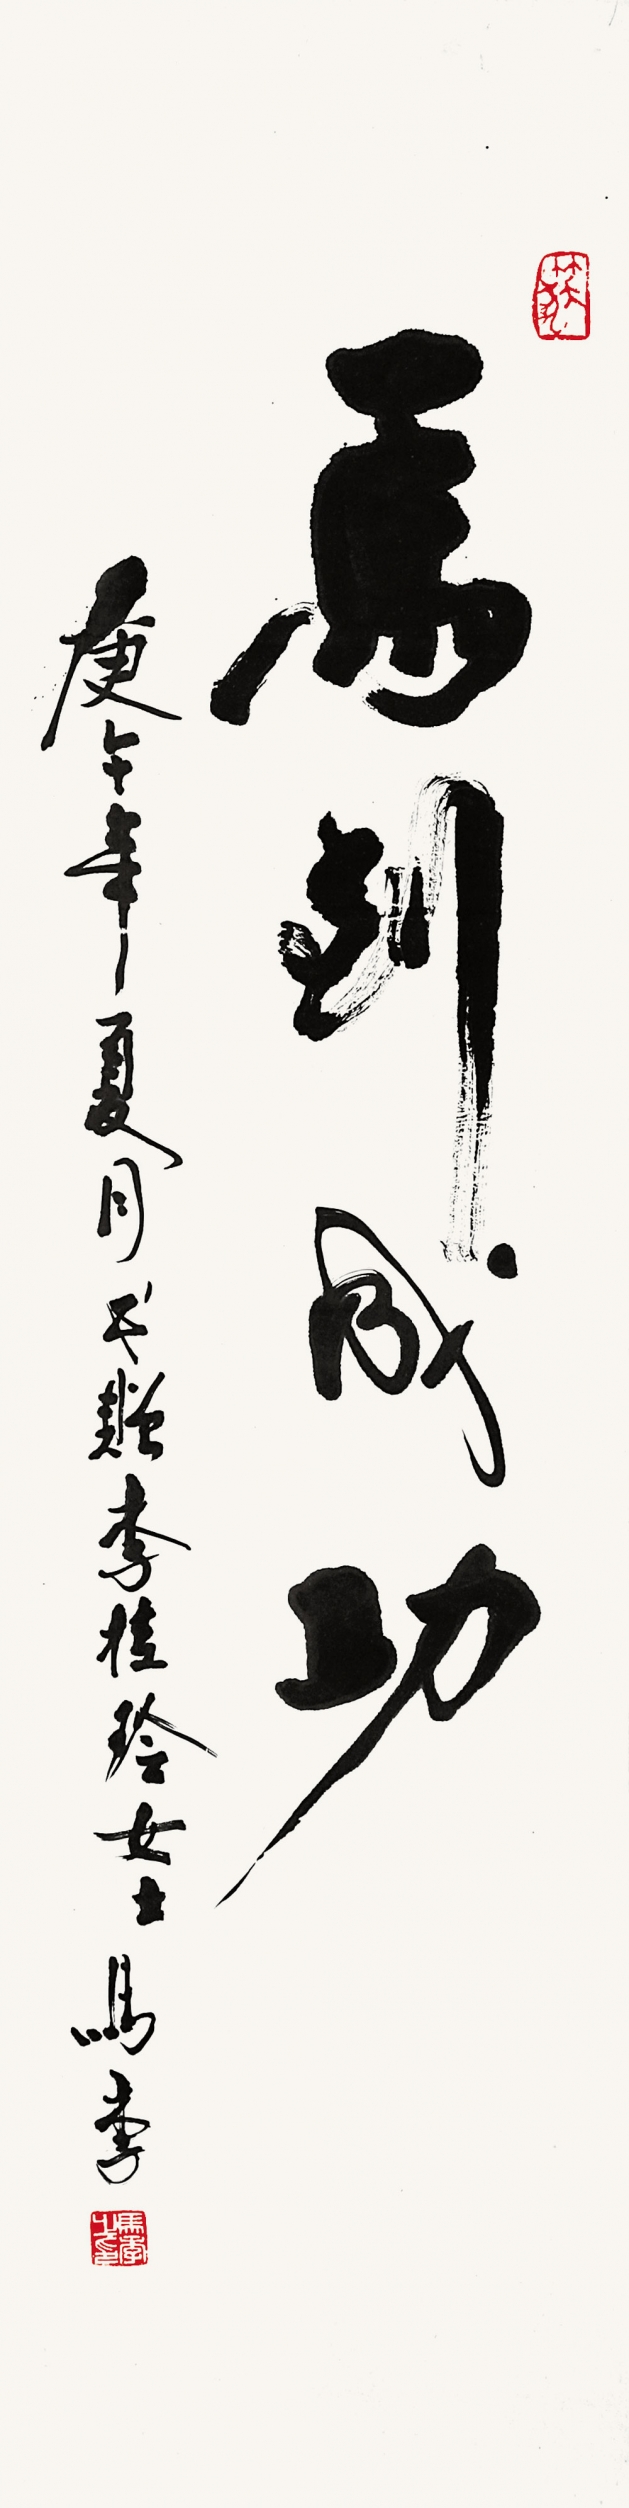 馬到成功
庚午年夏月 書 贈李桂玲女士 馬季
馬季之印